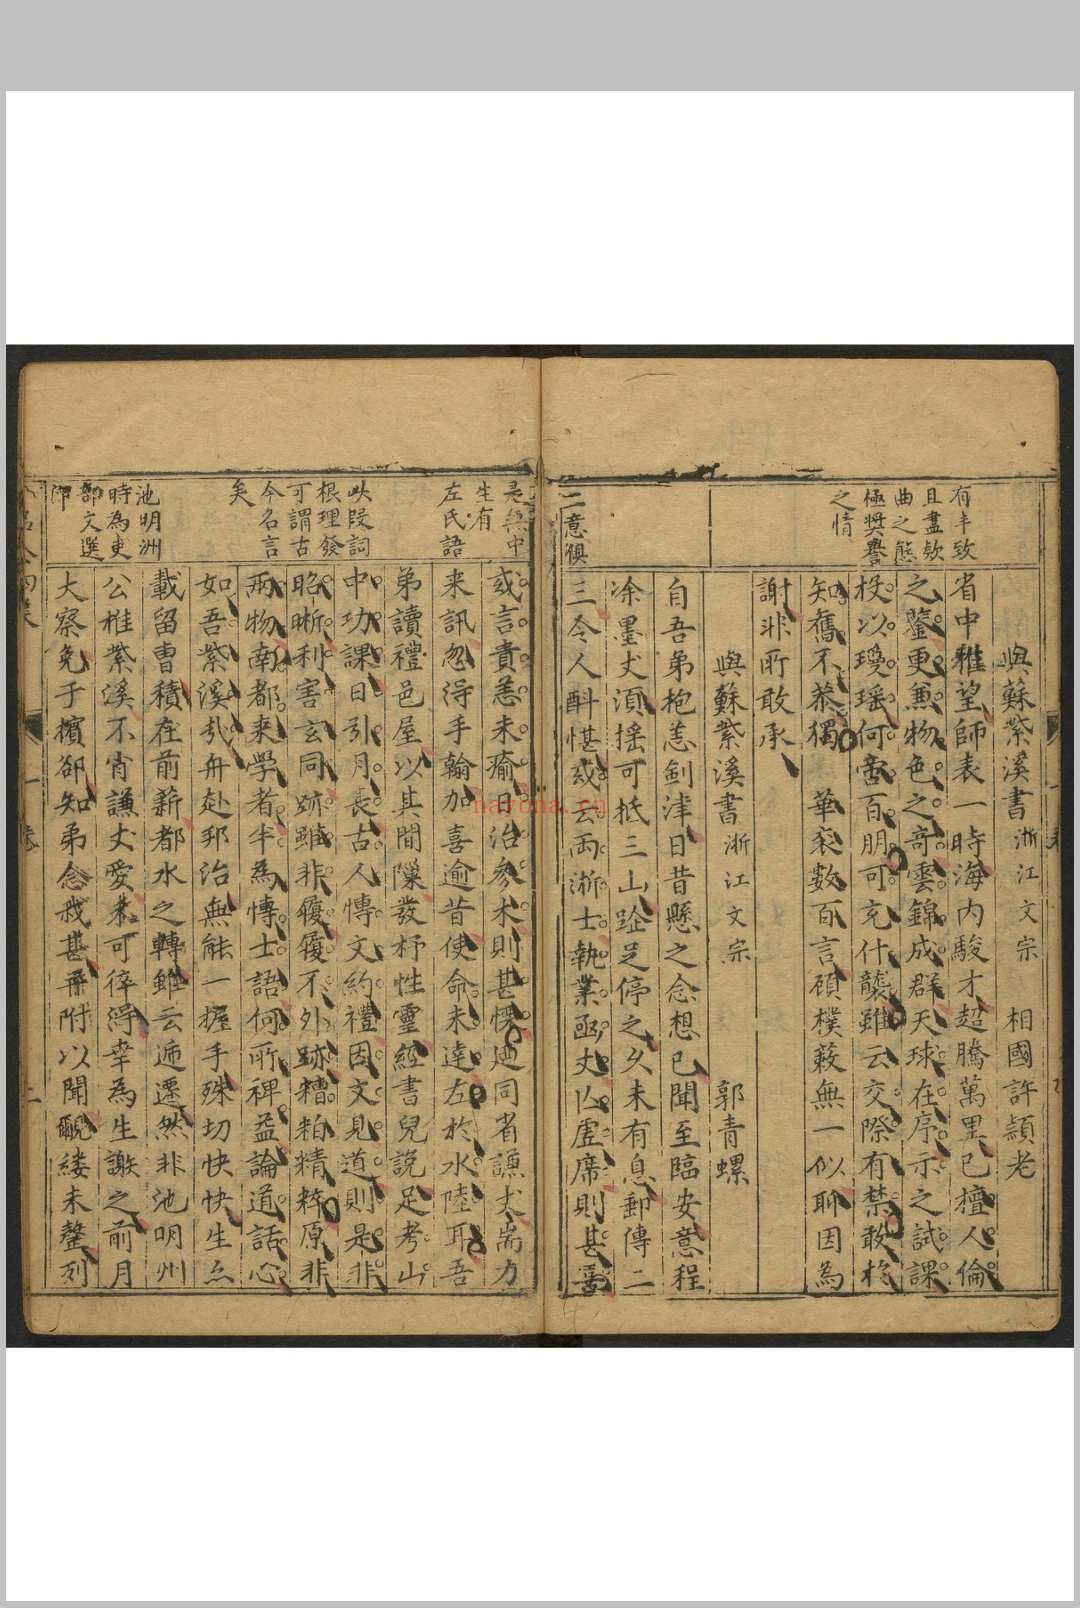 與蘇紫溪書 浙江文宗 相國許頴老
省中雅望師表一時海内駿才超騰萬里已擅人倫
之鑒更兼物色之奇雲錦成群天球在序示之試課
投以瓊瑶何啻百朋可充什襲雖云交際有禁敢於
知舊不恭獨華衮數百言碩樸蔌無一似聊因為
謝非所敢承
與蘇紫溪書 浙江文宗 郭青螺
自吾弟抱恙劍津日昔懸之念想已聞至臨安意程
凃墨丈湏摇可抵三山跧足停之久未有息郵傳二
三令人斟憇或云両浙士執業函丈仏虗席則甚喜
或言貴恙未瘉日治參术則甚愕廼同省謙丈耑力
来訊忽得手翰加喜逾昔使命未達左於水陸耳吾
弟讀禮邑屋以其間隟發抒性靈經書兒説足考山
中功課日引月長古人慱文約禮因文見道則是非
昭晰利害玄同跡雖非履履不外跡糟粕精粹原非
兩物南都来學者半為慱士語何所禆益論道話心
如吾紫溪弘舟赴邦治無能一握手殊切快快生亽
載留曹積在前薪都水之轉雖云逓遷然非池明州
公椎紫溪不肖謙丈愛来可徍浔幸為生謝之前月
大察免于擯郤知弟念我甚再附以聞覶縷未罄列
有丰致
且盡欵
曲之態
極奬譽
之情
二意俱
是無中
生有
左氏語
此段詞
根理發
可謂古
今名言
矣
池明洲
時為吏
部文選